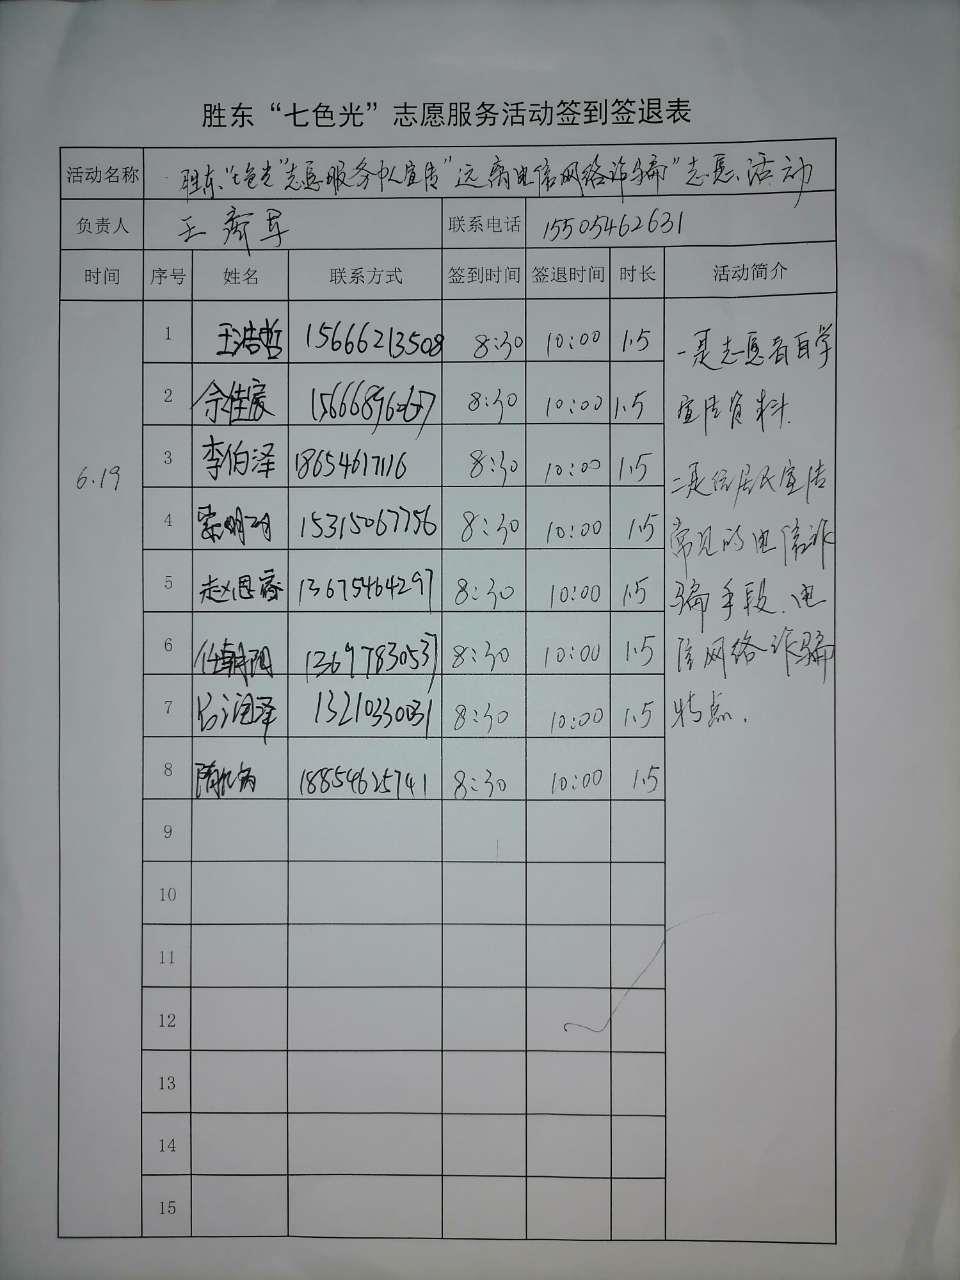 胜东“七色光”志愿服务活动签到签退表
活动名称 胜东“七色光”志愿服务中心宣传“远离电信网络诈骗”志愿活动
负责人 王 军 联系电话 15505462631
时间 序号 姓名 联系方式 签到时间 签退时间 时长 活动简介
6.19
1 王浩哲 15666213508 8:30 10:00 1.5
2 8:30 10:00 1.5
3 李伯泽 18654617116 8:30 10:00 1.5
4 15315067756 8:30 10:00 1.5
5 赵恩 13675464297 8:30 10:00 1.5
6 任朝阳 13697830537 8:30 10:00 1.5
7 润泽 13210330031 8:30 10:00 1.5
8 18854625741 8:30 10:00 1.5
9
10
11
12
13
14
15
一是志愿者自学
宣传资料.
二是给居民宣传
常见的电信诈
骗手段、电
信网络诈骗
特点.